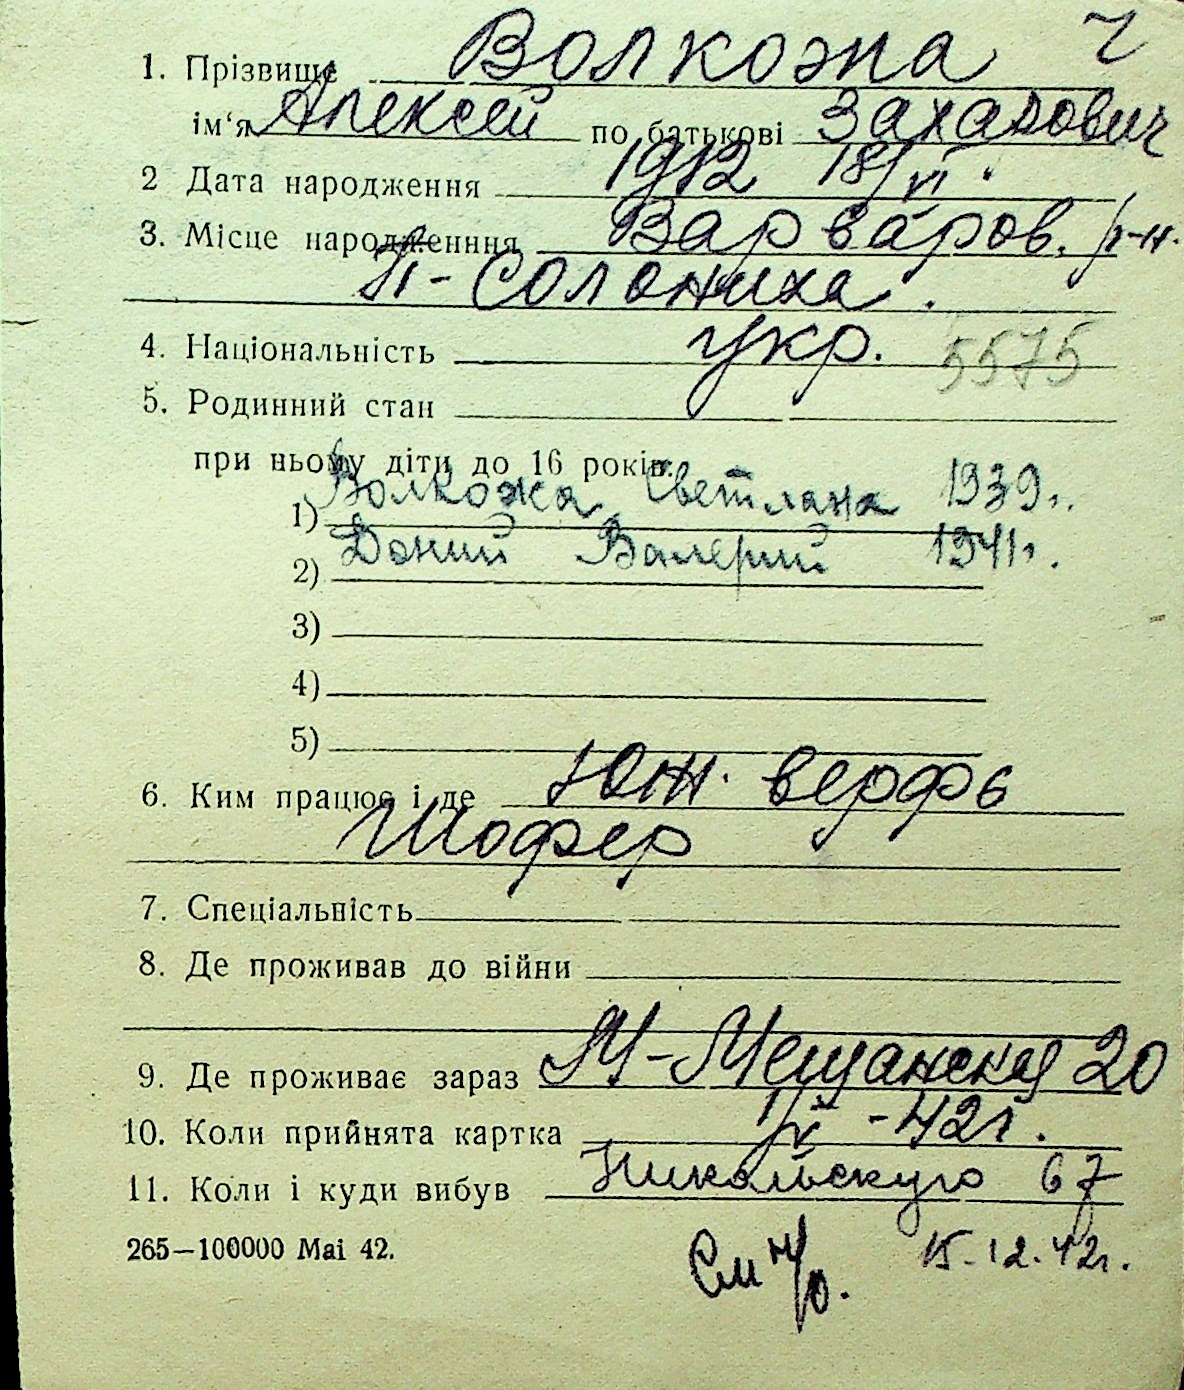 1. Прізвище Волкожа
ім‘я Алексей по батькові Захарович
2 Дата народження 1912 18/VI.
3. Місце народженння Варваров. р-н.
П-Солониха.
4. Національність укр. 5575
5. Родинний стан
при ньому діти до 16 років:
1) Волкожа Светлана 1939г.
2) Доний Валерий 1941г.
3)
4)
5)
6. Ким працює і де Юж. верфь
Шофер
7. Спеціальність
8. Де проживав до війни
9. Де проживає зараз М-Мещанская 20
10. Коли прийнята картка 1/V -42г.
11. Коли і куди вибув Никольскую 67
265—100000 Mai 42. См н/о. 15.12.42г.